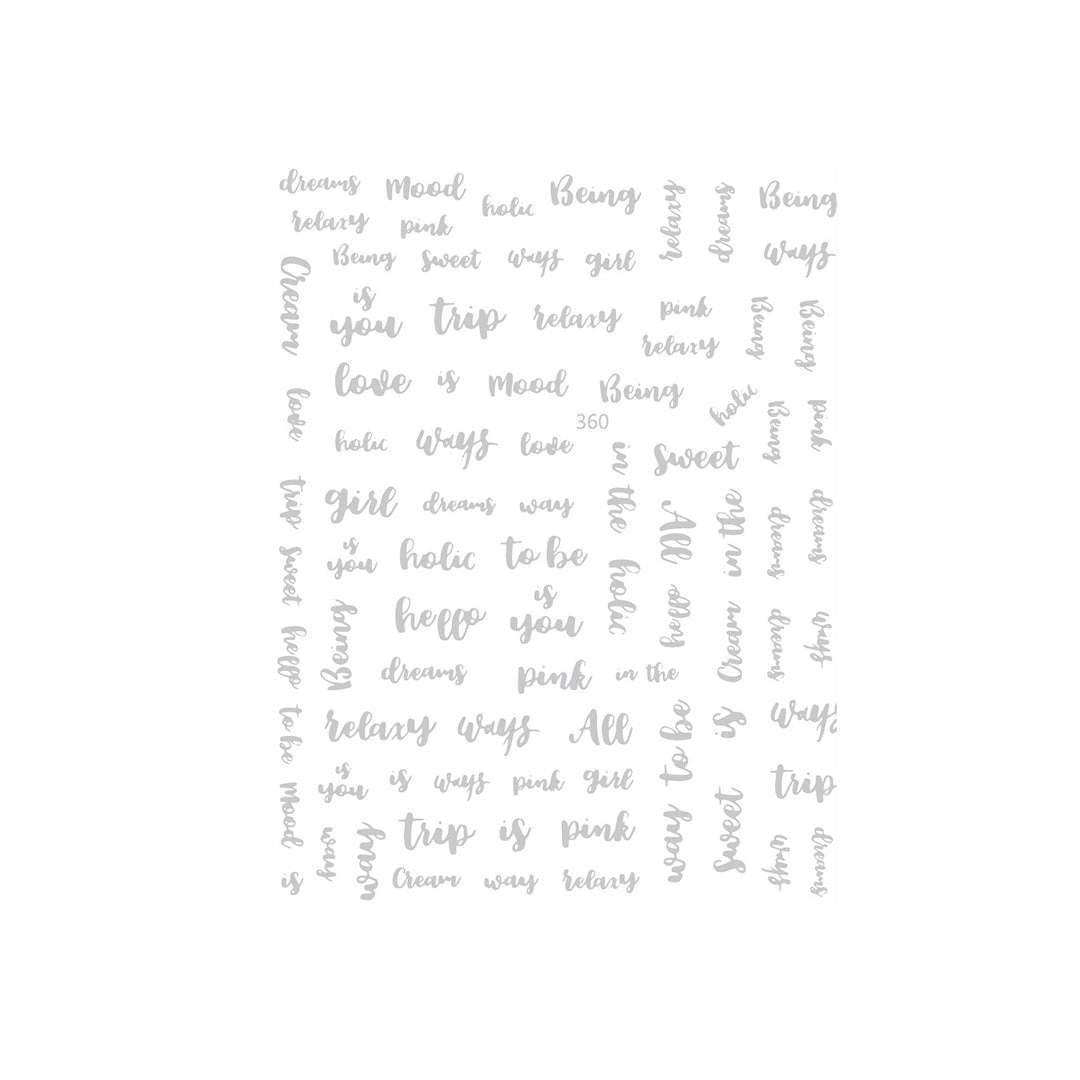 dreams Mood holic Being relaxy dreams Being
relaxy pink
Being sweet ways girl ways
Cream
is
you trip relaxy pink Being Being
relaxy
love is Mood Being holic
love 360 Being pink
holic ways love in the sweet
trip girl dreams way All in the dreams dreams
is
you holic to be
sweet holic
is
hello you hello Cream dreams ways
hello Being
dreams pink in the
to be relaxy ways All to be is ways
is
you is ways pink girl trip
Mood way way trip is pink way sweet ways dreams
is Cream way relaxy